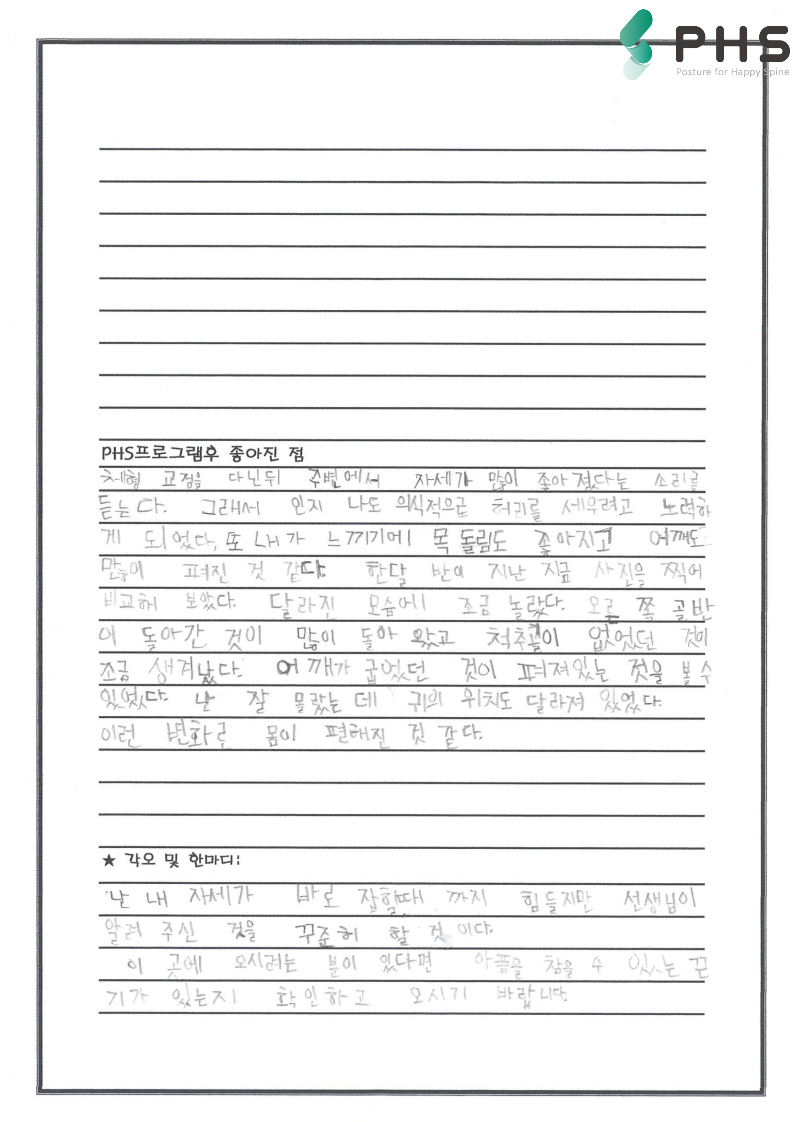 PHS
Posture for Happy Spine
PHS프로그램후 좋아진 점
체형 교정을 다닌뒤 주변에서 자세가 많이 좋아졌다는 소리를
듣는다. 그래서 인지 나도 의식적으로 허리를 세우려고 노력하
게 되었다, 또 내가 느끼기에 목 돌림도 좋아지고 어깨도
많이 펴진 것 같다. 한달 반이 지난 지금 사진을 찍어
비교해 보았다. 달라진 모습에 조금 놀랐다. 오른 쪽 골반
이 돌아간 것이 많이 돌아 왔고 척추골이 없었던 것이
조금 생겨났다. 어깨가 굽었던 것이 펴져있는 것을 볼 수
있었다. 난 잘 몰랐는데 귀의 위치도 달라져 있었다.
이런 변화로 몸이 편해진 것 같다.
★ 각오 및 한마디:
난 내 자세가 바로 잡힐때 까지 힘들지만 선생님이
알려 주신 것을 꾸준히 할 것 이다.
이 곳에 오시려는 분이 있다면 아픔을 참을 수 있는 끈
기가 있는지 확인하고 오시기 바랍니다.